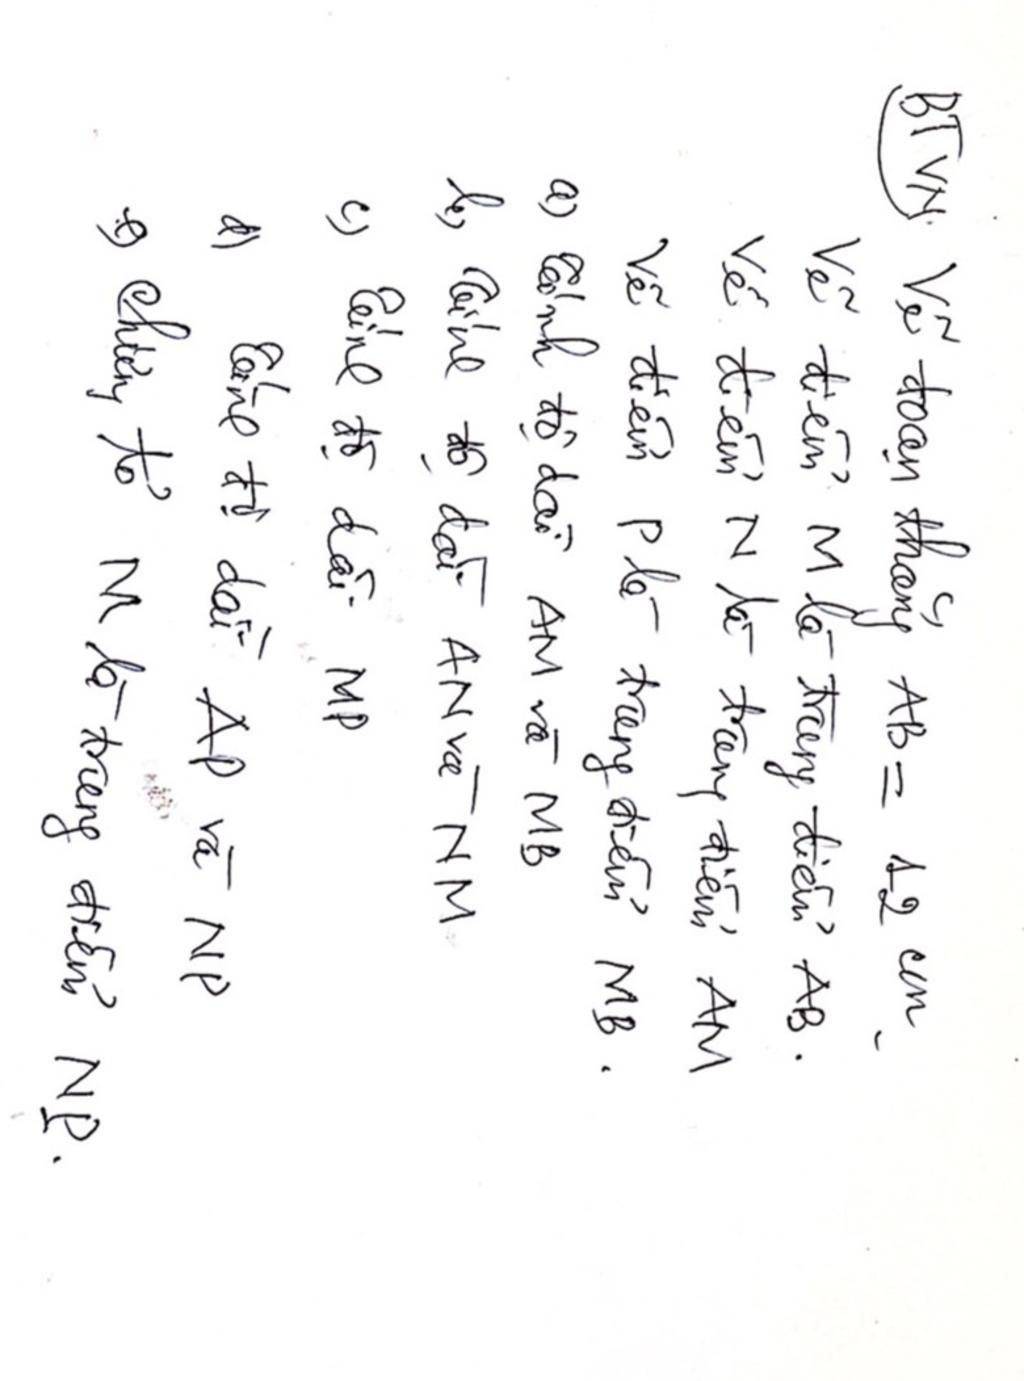 BTVN. Vẽ đoạn thẳng AB = 12 cm.
Vẽ điểm M là trung điểm AB.
Vẽ điểm N là trung điểm AM
Vẽ điểm P là trung điểm MB.
a) Tính độ dài AM và MB
b) Tính độ dài AN và NM
c) Tính độ dài MP
d) Tính độ dài AP và NP
e) Chứng tỏ M là trung điểm NP.